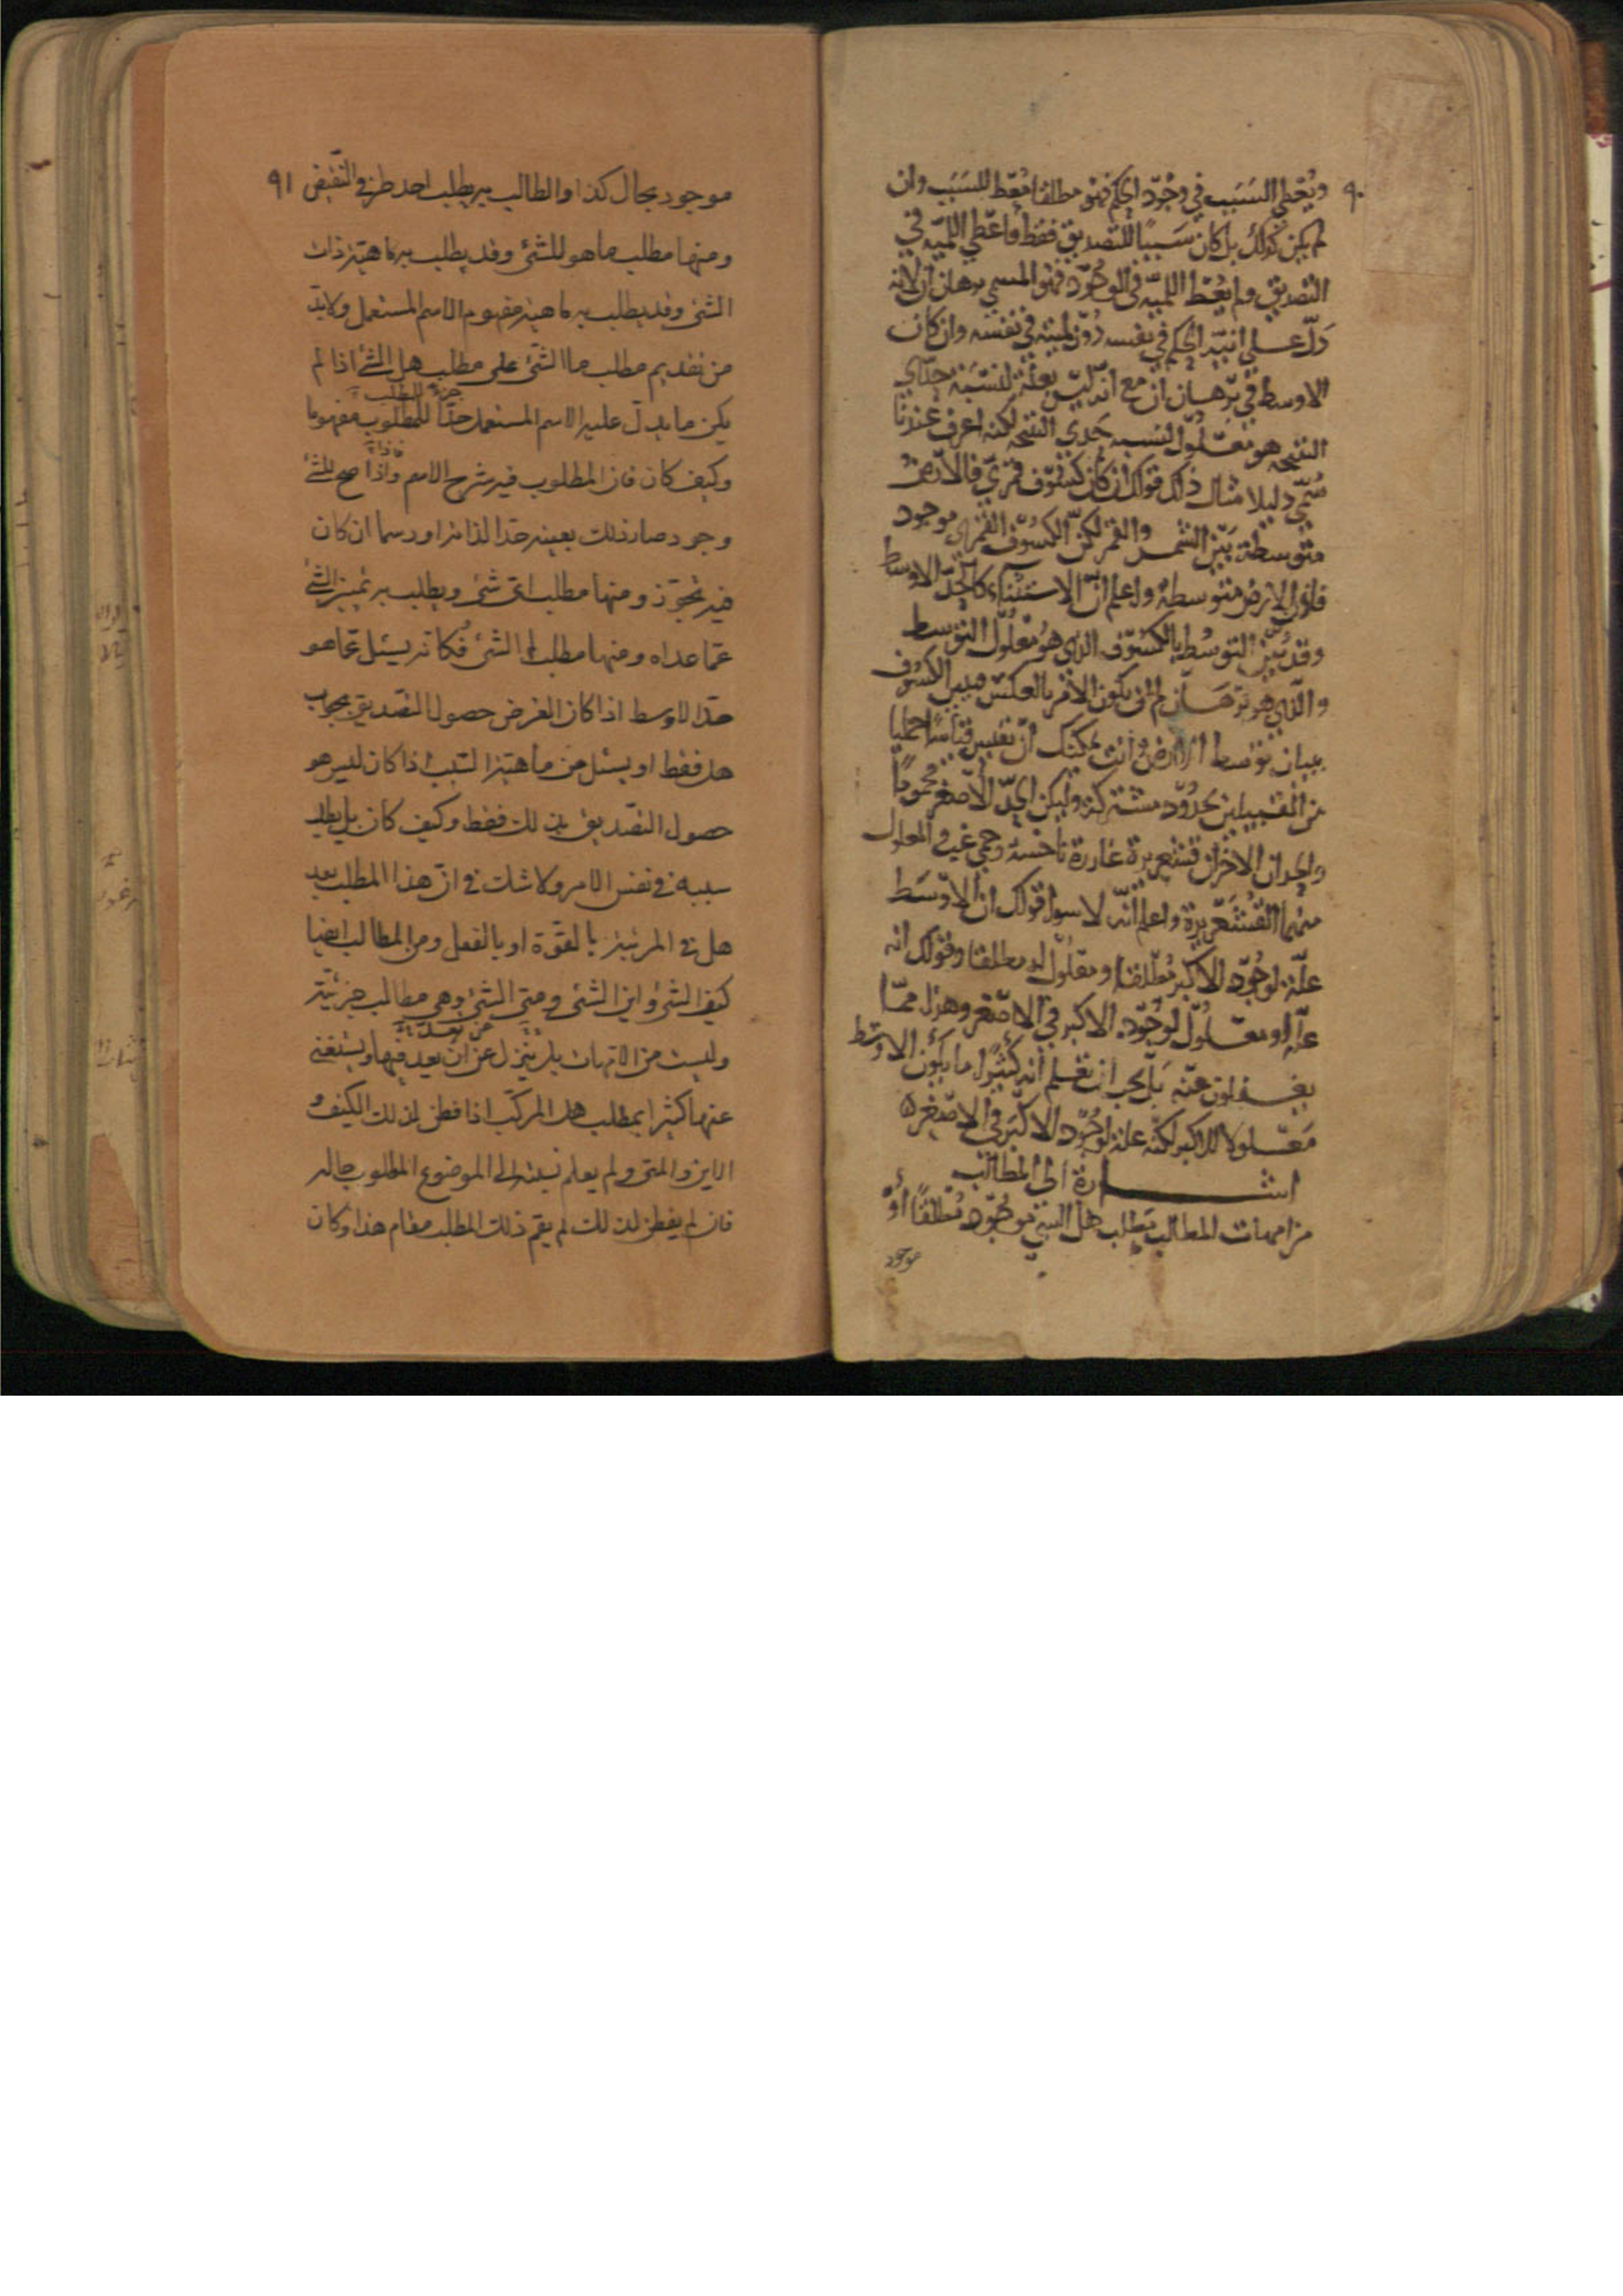 ٩٠
ويُعْطي السَبَب في وجُوْد الحكم فهو مطلقا مُعْطٍ للسَبَب وان
لم يكن كذلك بل كان سَببًا للتصديق فقط فاعْطي اللميّه في
التصديق ولم يُعْط اللميّه في الوجُوْد فهو المسمي برهان انّ لانه
دَلّ علي انيّه الحكم في نفسه دُوْن لميته في نفسه وان كان
الاوسط في بُرْهان انّ مع انّه ليْس بعلّة لنسْبَة حدّي
النتيجه هو معْلُول لنسبه حَدي النتيجه لكنه اعرف عندنا
سُمّي دليلا مثال ذلك قولك ان كان كسُوْف قمريّ فالأرْض
متوسطة بَيْن الشمس والقمر لكنّ الكسُوْف القمري موجود
فاذن الارض متوسطه واعلم انّ الاستثناء كالحَدّ الاوسط
وقد بُيّن التوسُط بالكسُوْف الذي هو معْلُول التوسط
والّذي هو برْهَان لم ان يكون الامْر بالعكْس فيبين الكسُوْف
ببيان توسط الارْض وانت يمكنك ان تقيس قياسًا حَمليا
من القبيلين بحدُوْد مشتركة وليكن الحَدّ الأصْغر محْمُومًا
والحدان الاخران قشعْريرة غارزة ناخسة وحمي غب والمعلول
منهما القُشَعْريرة واعلم انّه لا سواء قولك ان الأوْسَط
علّة لوجُوْد الاكبر مُطْلقا او معْلُول له مطلقا وقولك انه
علّة او معْلُوْل لوجُوْد الاكبر في الاصْغر وهذا ممّا
يغفلون عنْه بَلْ يجب ان تعْلم انه كثيْرًا ما يكون الاوسَط
مَعْلولا للاكبر لكنّه علة لوجُوْد الاكْبَر في الاصْغر ه
اشارة الي المطالب
من امهات المطالب مَطْلب هل الشي موجُوْد مُطْلقًا أوْ
موجود
٩١
موجود بحال كذا والطالب به يطلب احد طرفي النّقيض
ومنها مطلب ما هو للشئ وقد يطلب به ماهيّة ذات
الشئ وقد يطلب به ماهيّة مفهوم الاسم المستعمل ولابدّ
من تقديم مطلب ما الشّئ على مطلب هل الشئ اذا لم
يكن ما يدلّ عليه الاسم المستعمل حدّا للمطلوب مفهوما
وكيف كان فان المطلوب فيه شرح الاسم واذا صح للشئ
وجود صار ذلك بعينه حدّا لذاته او رسما ان كان
فيه تجوّز ومنها مطلب اىّ شئ ويطلب به تميز الشئ
عمّا عداه ومنها مطلب لم الشئ فكانّه يسئل عمّا هو
حدّ الاوسط اذا كان الغرض حصول التصديق بجواب
هل فقط او يسئل عن ماهيّة السّبب اذا كان ليس هو
حصول التصديق بذلك فقط وكيف كان بل يطلب
سببه فى نفس الامر ولا شك فى انّ هذا المطلب بعد
هل فى المرتبة بالقوّة او بالفعل ومن المطالب ايضا
كيف الشئ واين الشئ ومتى الشئ وهى مطالب جزئيّة
وليست من الامهات بل ينزل عن ان يعد فيها ويستغنى
عنها كثيرا بمطلب هل المركّب اذا فطن لذلك الكيف و
الاين والمتى ولم يعلم نسبته الى الموضوع المطلوب حاله
فان لم يفطن لذلك لم يقم ذلك المطلب مقام هذا وكان